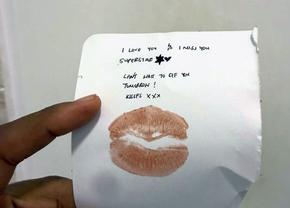 I LOVE YOU & I MISS YOU
SUPERSTAR
CAN'T WAIT TO SEE YOU
TOMORROW!
KISSES XXX